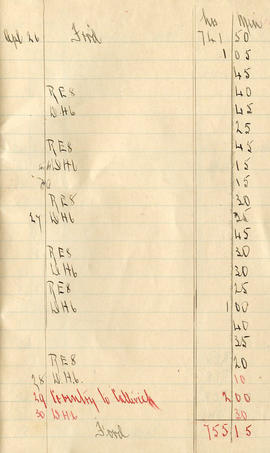 hrs Min
Apl 26 Ford 741 50
1 05
45
RE8 40
WH6 45
25
RE8 45
WH6 15
15
RE8 30
27 WH6 25
45
RE8 30
WH6 30
RE8 25
WH6 1 00
40
35
RE8 20
28 WH6. 10
29 to 2 00
30 WH6 30
Ford 755 15